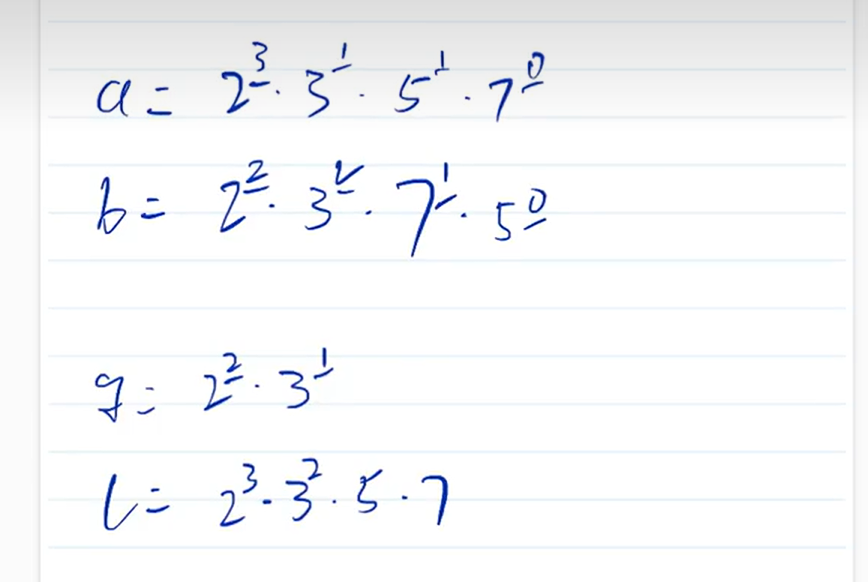 a = 2³ · 3¹ · 5¹ · 7⁰
b = 2² · 3² · 7¹ · 5⁰
g = 2² · 3¹
l = 2³ · 3² · 5 · 7